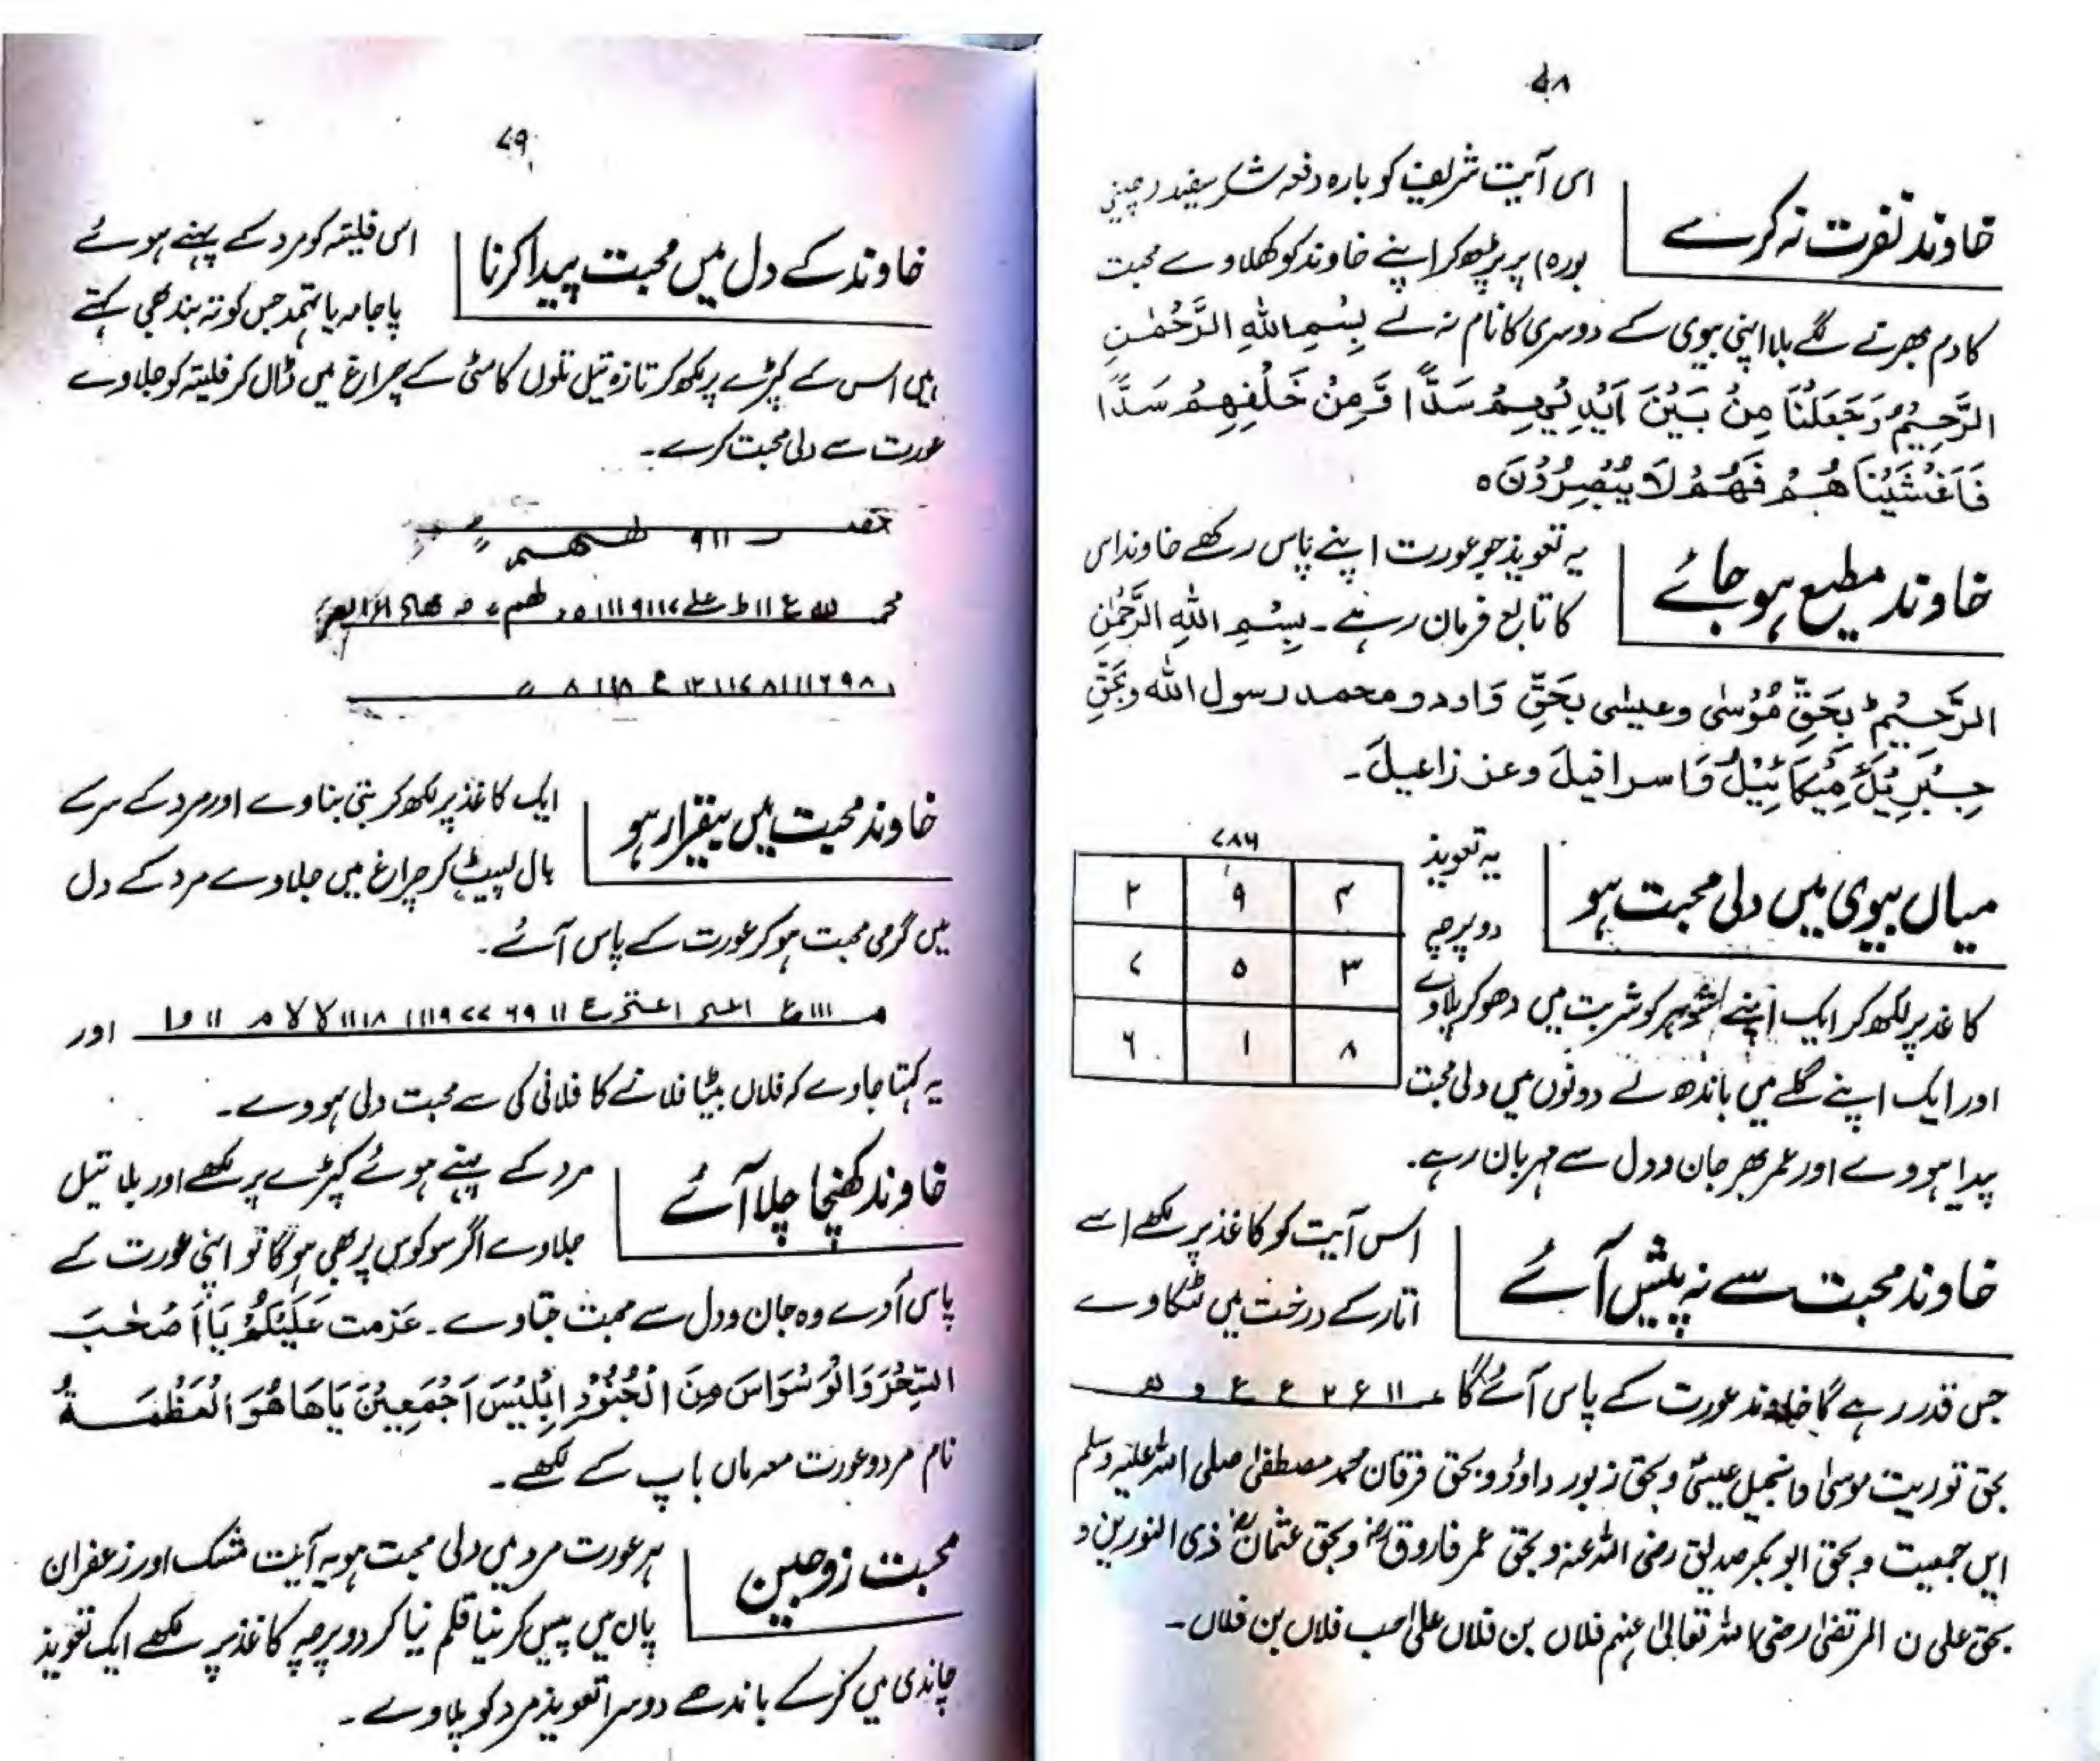 ۷۸
خاوند نفرت نہ کرے
اس آیت شریف کو بارہ دفعہ شکر سفید (چینی
بورہ) پر پڑھ کر اپنے خاوند کو کھلاوے محبت
کا دم بھرنے لگے بلا اپنی بیوی کے دوسری کا نام نہ لے بِسْمِ اللهِ الرَّحْمٰنِ
الرَّحِيْمُ وَجَعَلْنَا مِنْ بَيْنَ اَيْدِيْهِمْ سَدًّا وَّمِنْ خَلْفِهِمْ سَدًّا
فَاَغْشَيْنَا هُمْ فَهُمْ لَا يُبْصِرُوْنَ ہ
خاوند مطیع ہو جائے
یہ تعویذ جو عورت اپنے پاس رکھے خاوند اس
کا تابع فرمان رہے۔ بِسْمِ اللهِ الرَّحْمٰنِ
الرَّحِيْمُ بِحَقِّ مُوْسٰى وعیسٰی بحَقِّ دَاود و محمد رسول الله وبَحَقِّ
جِبْرِيْلَ مِيْكَائِيْلَ وَاسرافیلَ وعزرائیلَ۔
میاں بیوی میں دلی محبت ہو
یہ تعویذ
دو پرچہ
کاغذ پر لکھ کر ایک اپنے شوہر کو شربت میں دھو کر پلاوے
اور ایک اپنے گلے میں باندھ لے دونوں میں دلی محبت
پیدا ہووے اور عمر بھر جان و دل سے مہربان رہے۔
۷۸۶
۴ ۹ ۲
۳ ۵ ۷
۸ ۱ ۶
خاوند محبت سے نہ پیش آئے
اس آیت کو کاغذ پر لکھے اسے
انار کے درخت میں لٹکاوے
جس قدر رہے گا خاوند عورت کے پاس آئے گا
بحق توریت موسیٰ و انجیل عیسیٰ و بحق زبور داوٗد و بحق فرقان محمد مصطفیٰ صلی اللہ علیہ وسلم
ایں جمعیت و بحق ابوبکر صدیق رضی اللہ عنہ و بحق عمر فاروقؓ و بحق عثمانؓ ذی النورین و
بحق علی ن المرتضیٰ رضی اللہ تعالیٰ عنہم فلاں بن فلاں علیٰ حب فلاں بن فلاں۔
۷۹
خاوند کے دل میں محبت پیدا کرنا
اس فلیتہ کو مرد کے پہنے ہوئے
پاجامہ یا تہمد جس کو تہ بند بھی کہتے
ہیں اس کے کپڑے پر لکھ کر تازہ تیل تلوں کا مٹی کے چراغ میں ڈال کر فلیتہ کو جلاوے
عورت سے دلی محبت کرے۔
خاوند محبت میں بیقرار ہو
ایک کاغذ پر لکھ کر بتی بناوے اور مرد کے سر کے
بال لپیٹ کر چراغ میں جلاوے مرد کے دل
میں گرمی محبت ہو کر عورت کے پاس آئے۔
اور
یہ کہتا جاوے کہ فلاں بیٹا فلانے کا فلانی کی سے محبت دلی ہووے۔
خاوند کھنچا چلا آئے
مرد کے پہنے ہوئے کپڑے پر لکھے اور بلا تیل
جلاوے اگر سو کوس پر بھی ہو گا تو اپنی عورت کے
پاس آوے وہ جان و دل سے محبت جتاوے۔ عَزمت عَلَيْكُمْ يَا اَصْحٰبَ
السِّحْرَ وَالْوَسْوَاسَ مِنَ الْجُنُوْدِ اِبْلِيْسَ اَجْمَعِيْنَ يَاهَا هُوَ الْعَظْمَةُ
نام مرد و عورت معہ ماں باپ کے لکھے۔
محبت زوجین
ہر عورت مرد میں دلی محبت ہو یہ آیت مشک اور زعفران
پان میں پیس کر نیا قلم نیا کر دو پرچہ کاغذ پر لکھے ایک تعویذ
چاندی میں کر کے باندھے دوسرا تعویذ مرد کو پلاوے۔